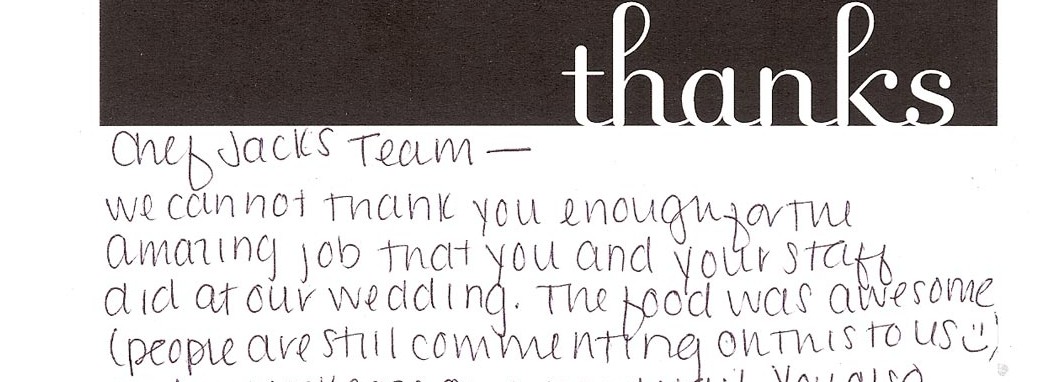 thanks
Chef Jack's Team —
we cannot thank you enough for the
amazing job that you and your staff
did at our wedding. The food was awesome
(people are still commenting on this to us :))
You also